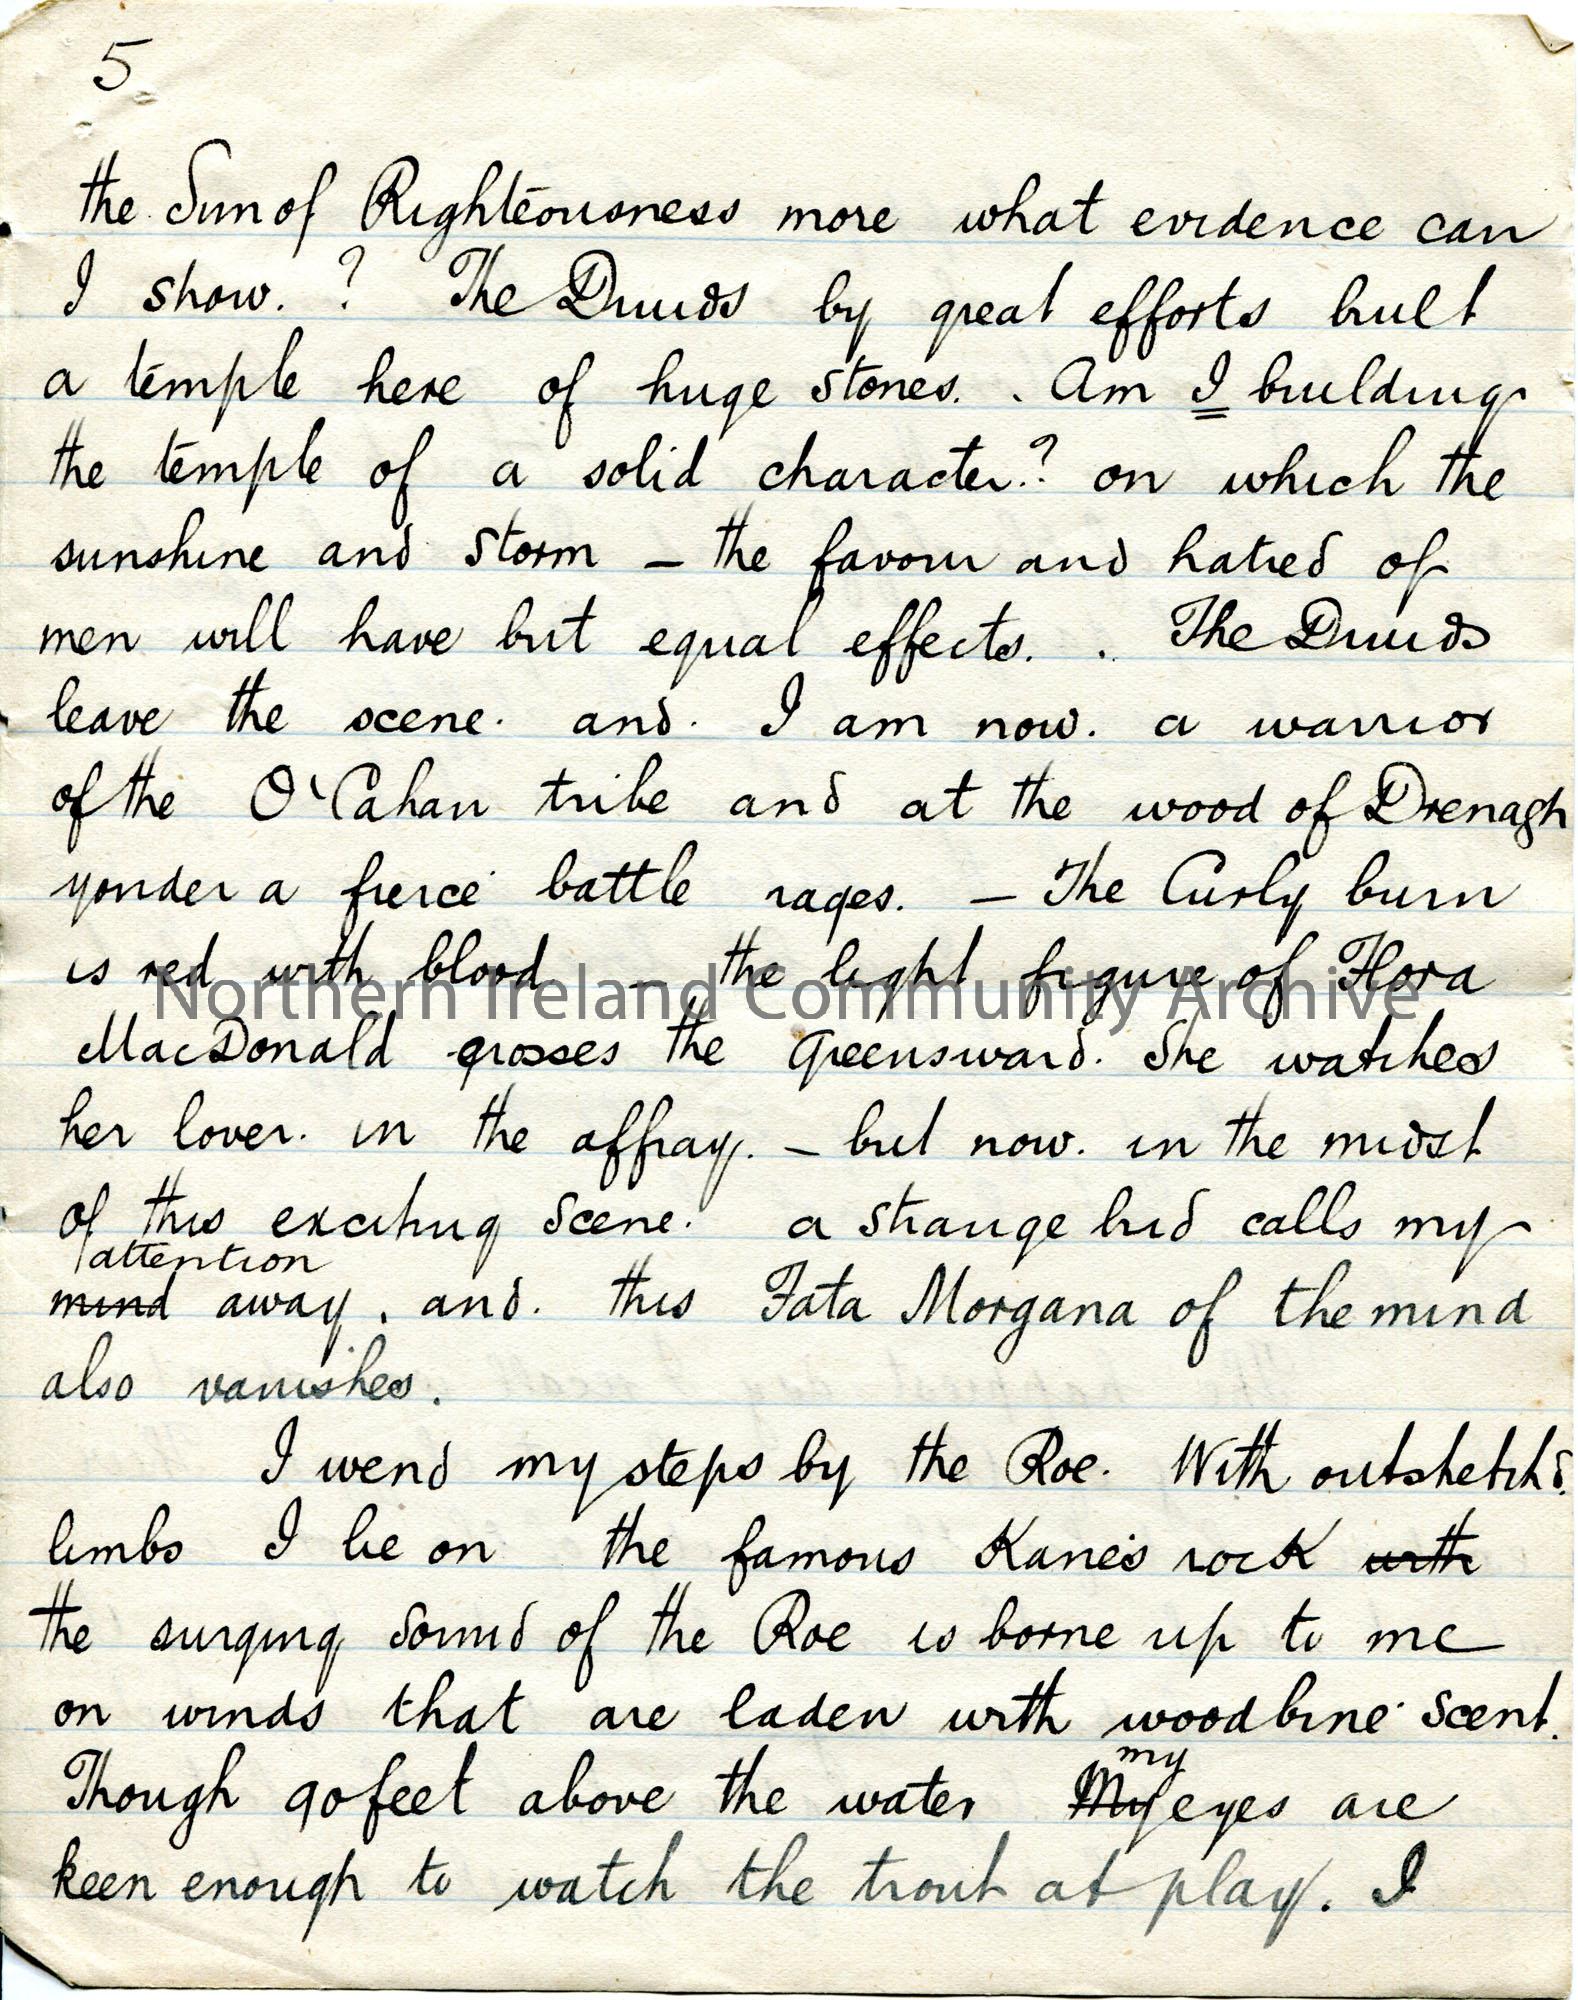 5
the Sun of Righteousness more what evidence can
I show. ? The Druids by great efforts built
a temple here of huge stones. . Am I building
the temple of a solid character? on which the
sunshine and storm – the favour and hatred of
men will have but equal effects. . The Druids
leave the scene. and. I am now. a warrior
of the O'Cahan tribe and at the wood of Drenagh
yonder a fierce battle rages. – The Curly burn
is red with blood – the light figure of Flora
MacDonald crosses the Greensward. She watches
her lover. in the affray. – but now. in the midst
of this exciting scene. a strange bird calls my
attention
mind away. and. this Fata Morgana of the mind
also vanishes.
I wend my steps by the Roe. With outstretch'd.
limbs I lie on the famous Kane's rock with
the surging sound of the Roe is borne up to me
on winds that are laden with woodbine scent.
my
Though 90 feet above the water My eyes are
keen enough to watch the trout at play. I
Northern Ireland Community Archive